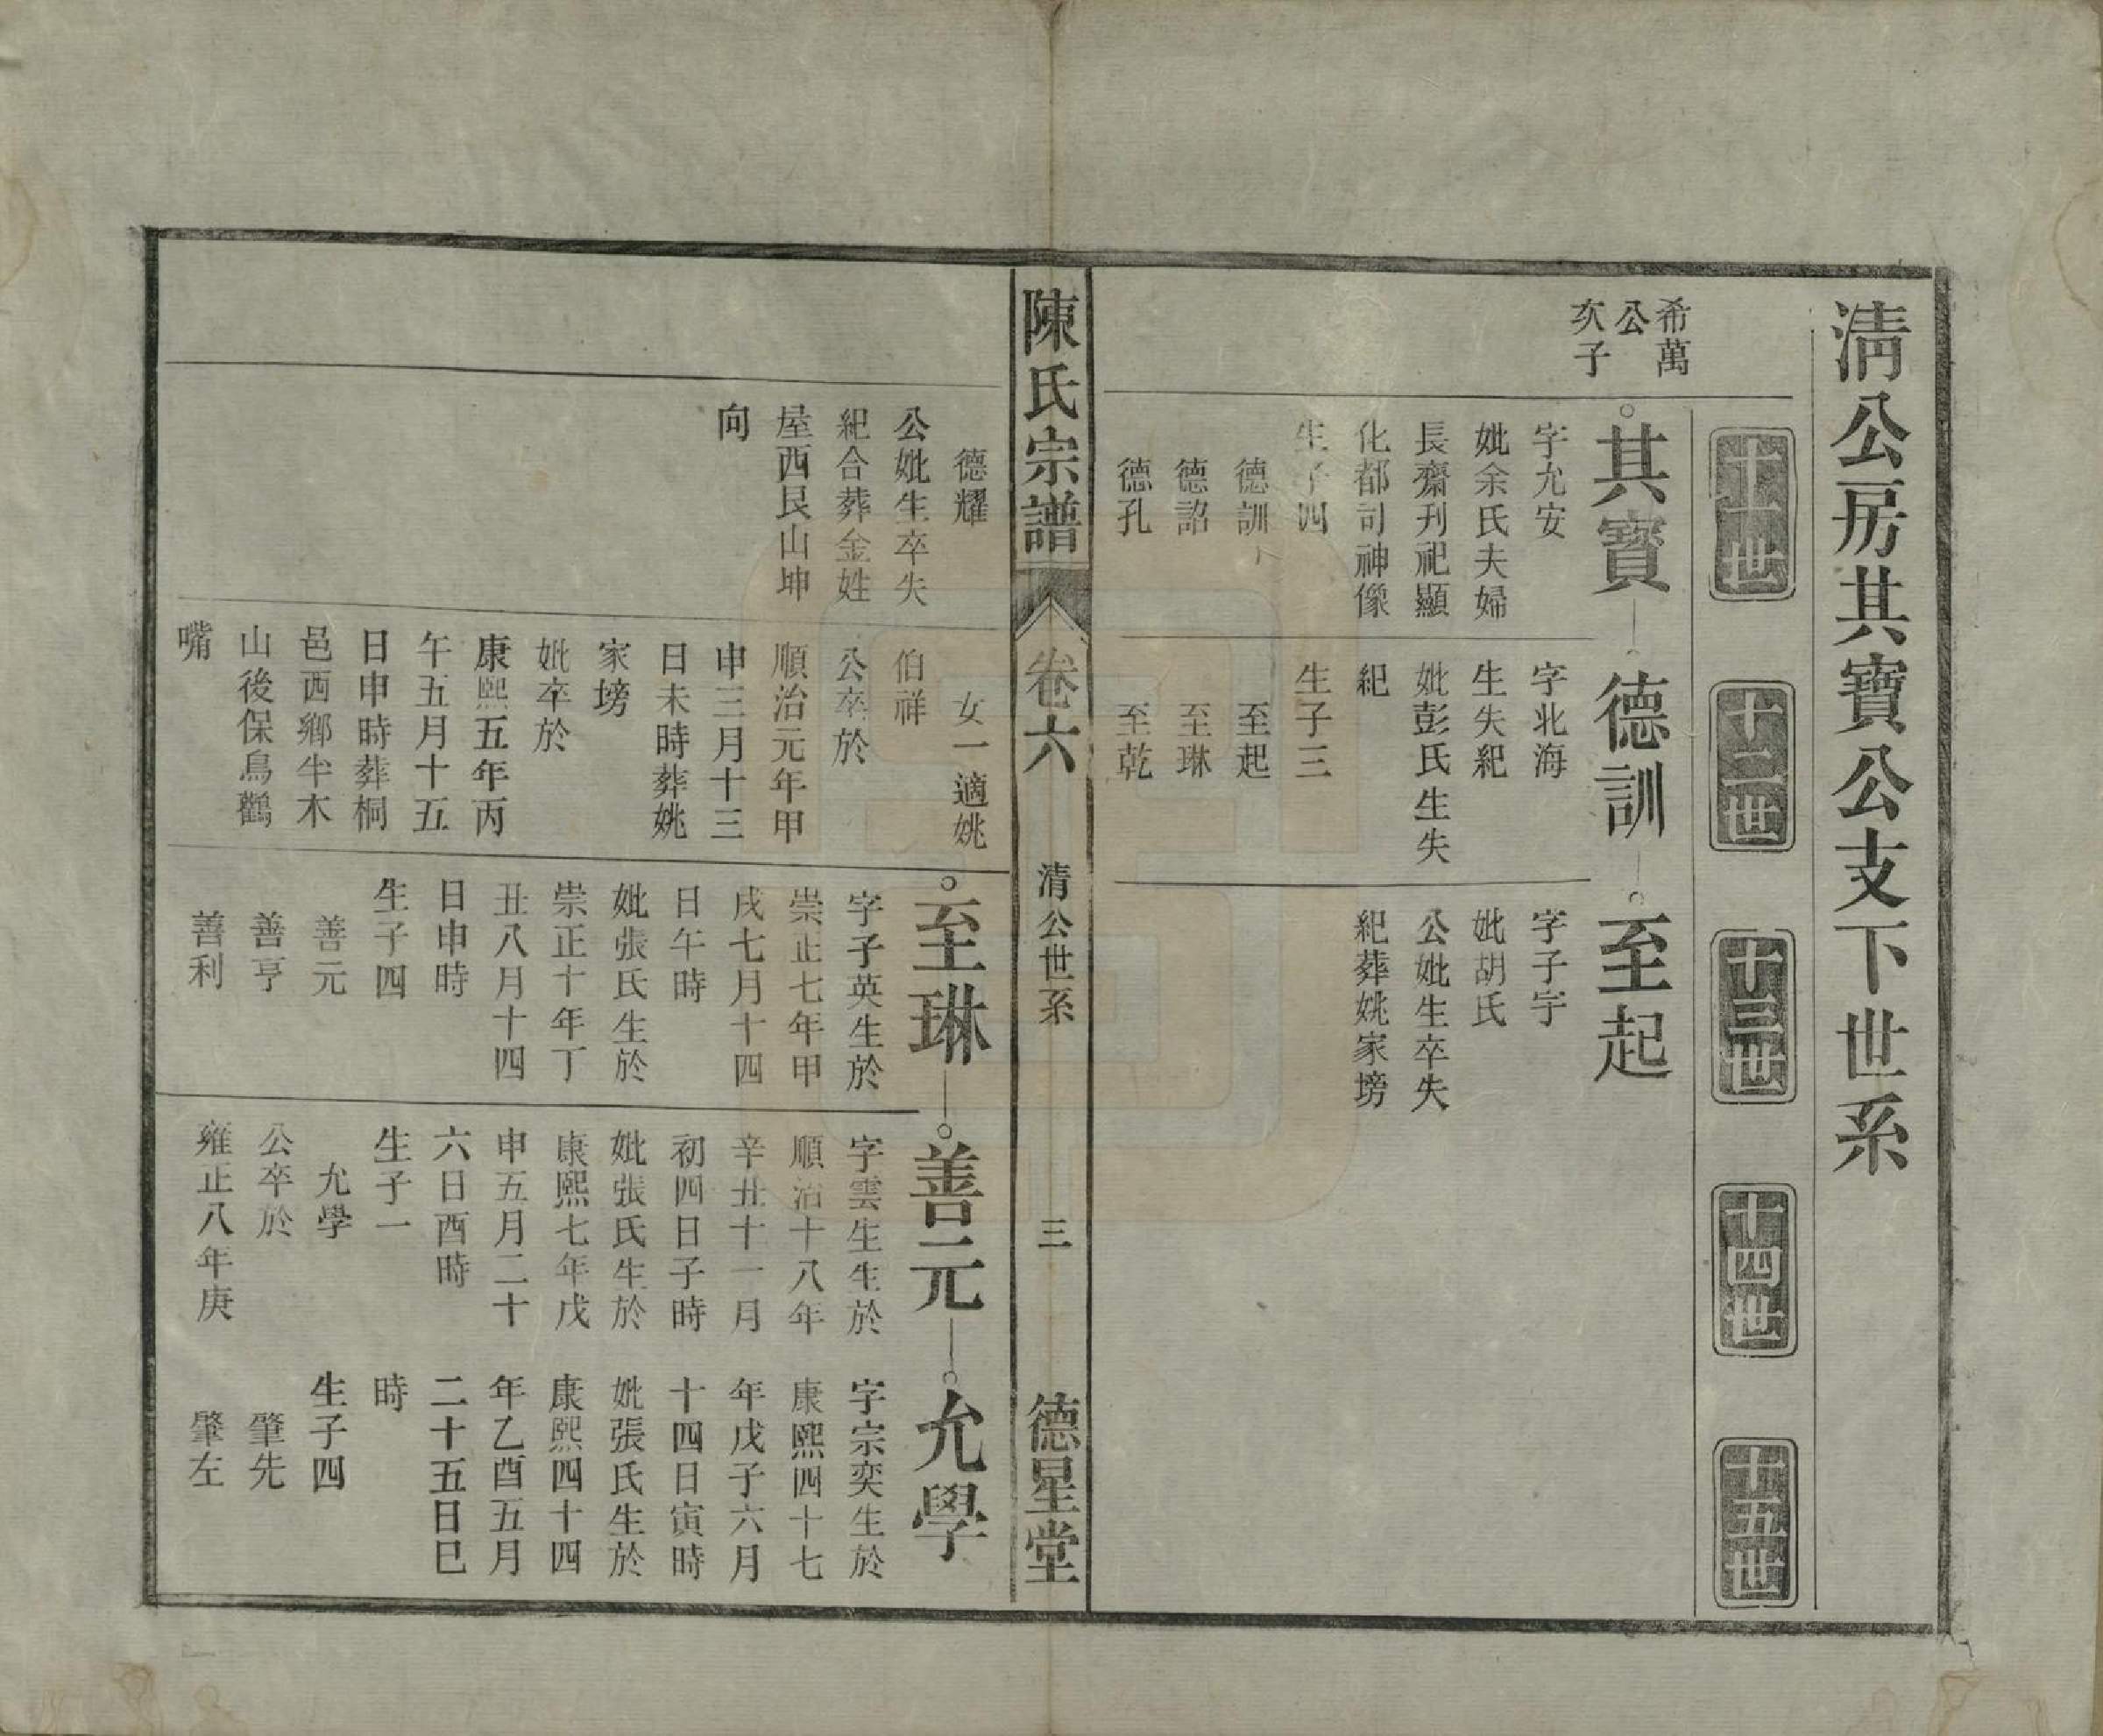 清公房其寶公支下世系
十一世
十二世
十三世
十四世
十五世
希萬
公
次子
其寶
字允安
妣余氏夫婦
長齋刋祀顯
化都司神像
生子四
德訓
德詔
德孔
德訓
字北海
生失紀
妣彭氏生失
紀
生子三
至起
至琳
至乾
至起
字子宇
妣胡氏
公妣生卒失
紀葬姚家塝
陳氏宗譜
卷六
清公世系
三
德星堂
德耀
公妣生卒失
紀合葬金姓
屋西艮山坤
向
女一適姚
伯祥
公卒於
順治元年甲
申三月十三
日未時葬姚
家塝
妣卒於
康熙五年丙
午五月十五
日申時葬桐
邑西鄉半木
山後保鳥鸛
嘴
至琳
字子英生於
崇正七年甲
戌七月十四
日午時
妣張氏生於
崇正十年丁
丑八月十四
日申時
生子四
善元
善亨
善利
善元
字雲生生於
順治十八年
辛丑十一月
初四日子時
妣張氏生於
康熙七年戊
申五月二十
六日酉時
生子一
允學
公卒於
雍正八年庚
允學
字宗奕生於
康熙四十七
年戊子六月
十四日寅時
妣張氏生於
康熙四十四
年乙酉五月
二十五日巳
時
生子四
肇先
肇左